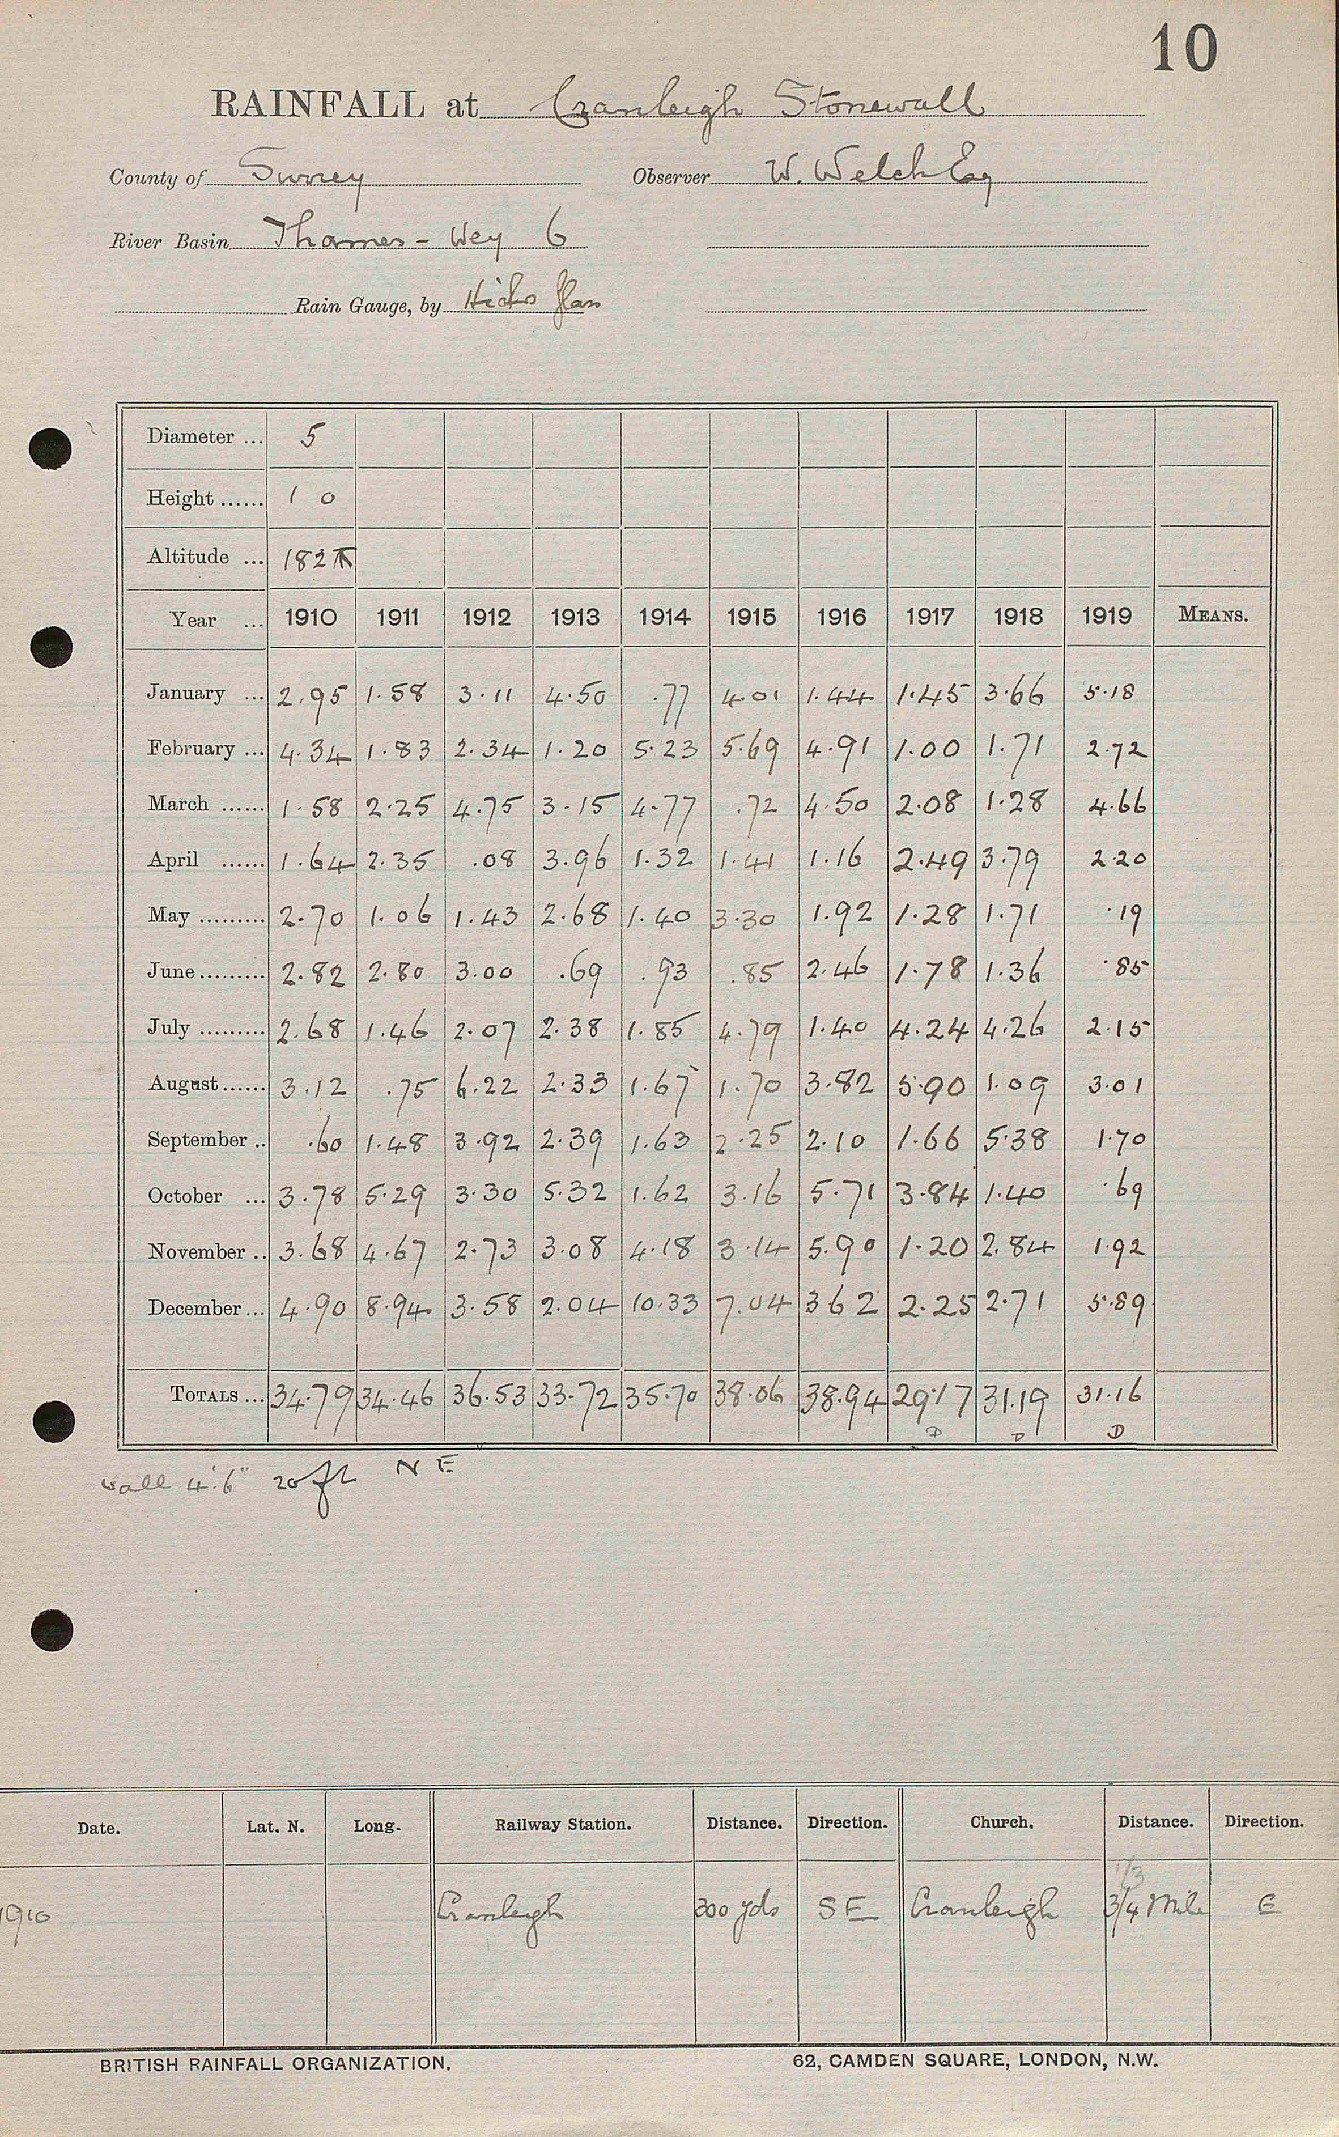 10
RAINFALL at Cranleigh Stonewall
County of Surrey Observer W. Welch Esq
River Basin Thames - Wey 6
Rain Gauge, by Hicks
Diameter ... 5
Height ...... 1 0
Altitude ... 182
Year ... 1910 1911 1912 1913 1914 1915 1916 1917 1918 1919 MEANS.
January ... 2.95 1.58 3.11 4.50 .77 4.01 1.44 1.45 3.66 5.18
February ... 4.34 1.83 2.34 1.20 5.23 5.69 4.91 1.00 1.71 2.72
March ...... 1.58 2.25 4.75 3.15 4.77 .72 4.50 2.08 1.28 4.66
April ...... 1.64 2.35 .08 3.96 1.32 1.41 1.16 2.49 3.79 2.20
May ......... 2.70 1.06 1.43 2.68 1.40 3.30 1.92 1.28 1.71 .19
June ......... 2.82 2.80 3.00 .69 .93 .85 2.46 1.78 1.36 .85
July ......... 2.68 1.46 2.07 2.38 1.85 4.79 1.40 4.24 4.26 2.15
August ...... 3.12 .75 6.22 2.33 1.67 1.70 3.82 5.90 1.09 3.01
September .. .60 1.48 3.92 2.39 1.63 2.25 2.10 1.66 5.38 1.70
October ... 3.78 5.29 3.30 5.32 1.62 3.16 5.71 3.84 1.40 .69
November .. 3.68 4.67 2.73 3.08 4.18 3.14 5.90 1.20 2.84 1.92
December ... 4.90 8.94 3.58 2.04 10.33 7.04 3 62 2.25 2.71 5.89
TOTALS ... 34.79 34.46 36.53 33.72 35.70 38.06 38.94 29.17 31.19 31.16
D D D
wall 4'.6" 20 ft NE
Date. Lat. N. Long. Railway Station. Distance. Direction. Church. Distance. Direction.
1/3
1910 Cranleigh 300 yds SE Cranleigh 3/4 Mile E
BRITISH RAINFALL ORGANIZATION. 62, CAMDEN SQUARE, LONDON, N.W.